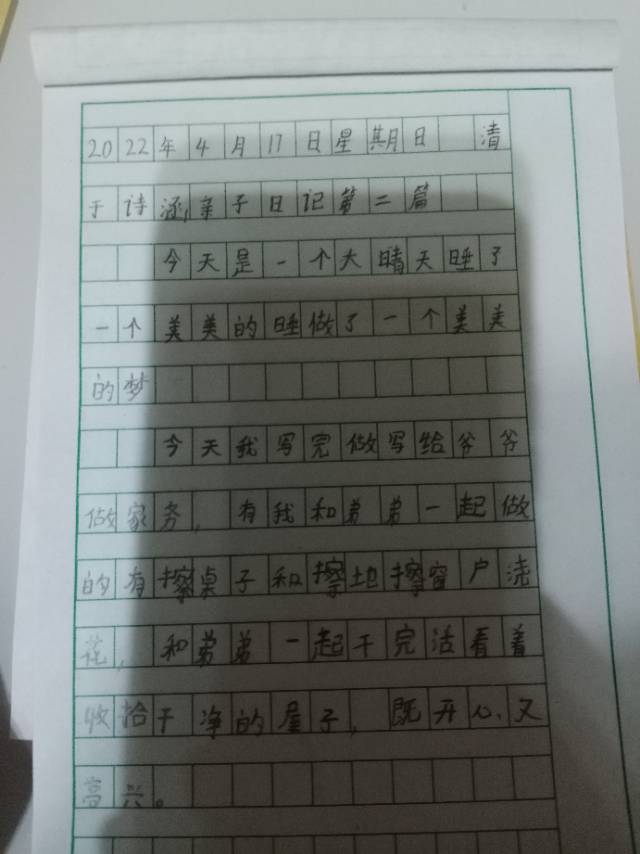 2022年4月17日星期日 清
于诗涵,亲子日记第二篇
今天是一个大晴天睡了
一个美美的睡做了一个美美
的梦
今天我写完做写给爷爷
做家务,有我和弟弟一起做
的有擦桌子和擦地擦窗户浇
花,和弟弟一起干完活看着
收拾干净的屋子,既开心、又
高兴。